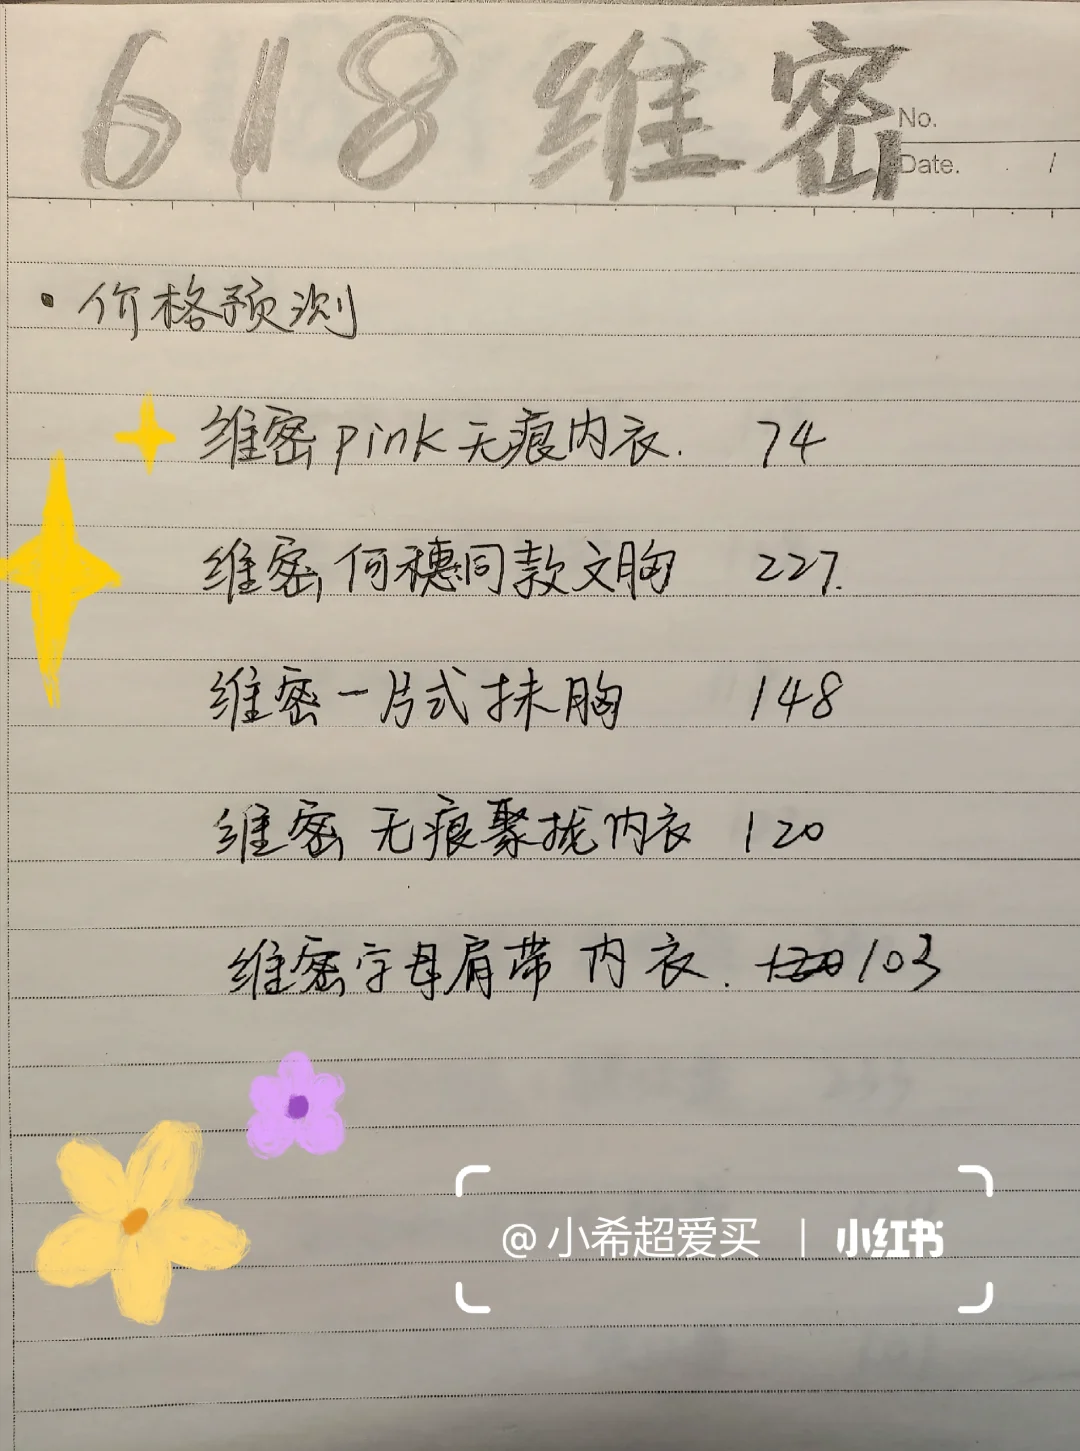 618 维密
No.
Date. /
• 价格预测
维密 pink 无痕内衣. 74
维密 何穗同款文胸 227.
维密一片式抹胸 148
维密 无痕聚拢内衣 120
维密字母肩带 内衣. 120 103
@小希超爱买 | 小红书